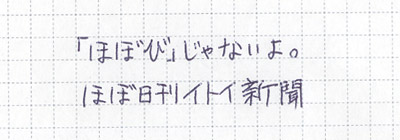 「ほぼび」じゃないよ。
ほぼ日刊イトイ新聞